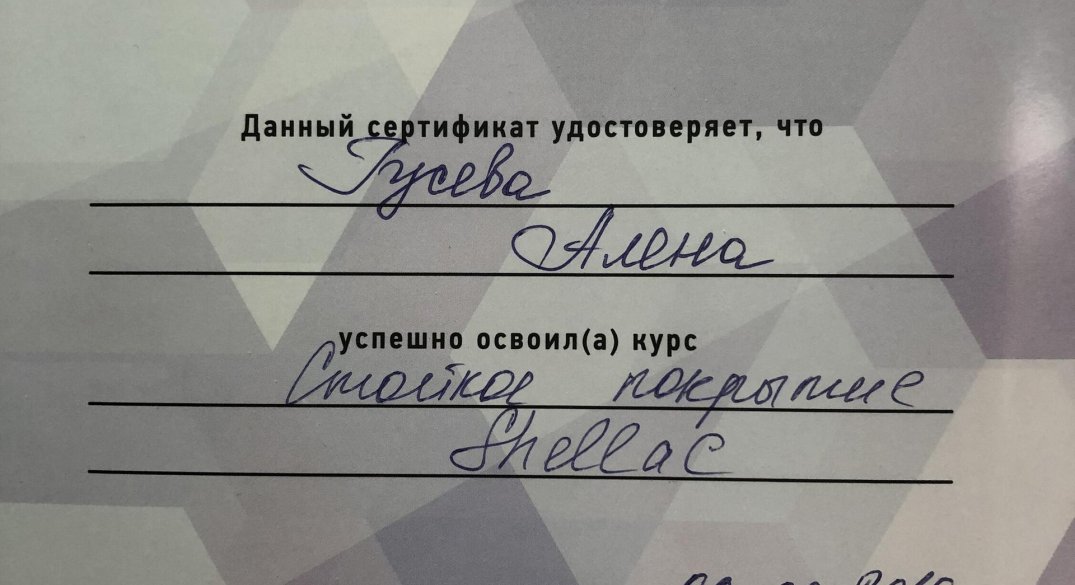 Данный сертификат удостоверяет, что
Гусева
Алена
успешно освоил(а) курс
Стойкое покрытие
Shellac